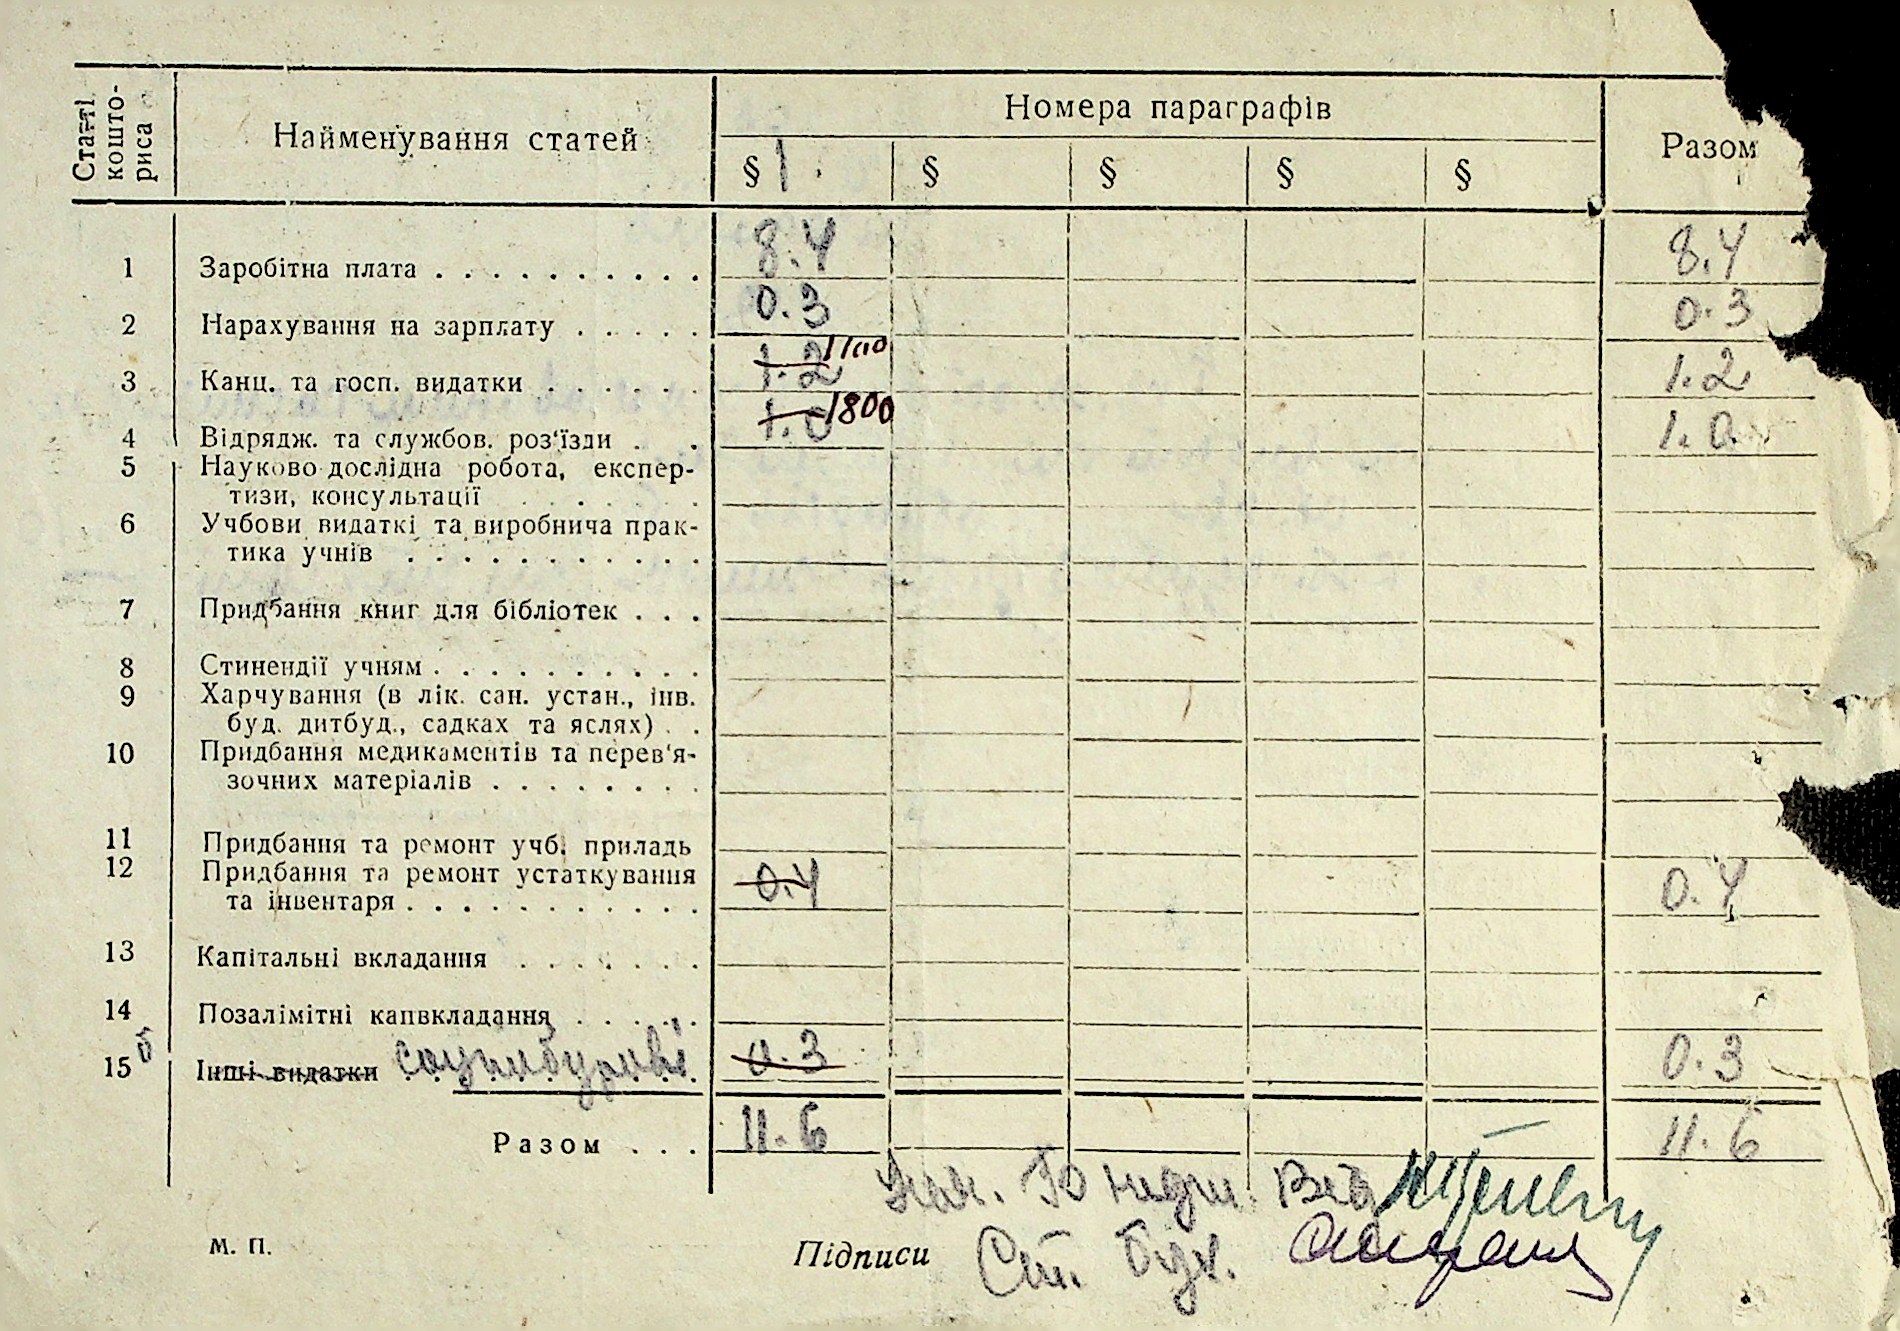 Статті кошториса Найменування статей Номера параграфів Разом
§ 1. § § § §
1 Заробітна плата . . . . . . . . . . 8.4 8.4
2 Нарахування на зарплату . . . . . 0.3 0.3
3 Канц. та госп. видатки . . . . . . 1.2 1.2
4 Відрядж. та службов. роз'їзди . . 1.0 1800 1.0
5 Науково-дослідна робота, експер-
тизи, консультації . . . . . .
6 Учбови видаткі та виробнича прак-
тика учнів . . . . . . . . . . .
7 Придбання книг для бібліотек . . .
8 Стинендії учням . . . . . . . . . .
9 Харчування (в лік. сан. устан., інв.
буд. дитбуд., садках та яслях) . .
10 Придбання медикаментів та перев'я-
зочних матеріалів . . . . . . . .
11 Придбання та ремонт учб. приладь
12 Придбання та ремонт устаткування
та інвентаря . . . . . . . . . . . 0.4 0.4
13 Капітальні вкладання . . . . . . .
14 Позалімітні капвкладання . . . . .
15 б Інші видатки 0.3 0.3
Разом . . . 11.6 11.6
М. П. Підписи Ст. бух.